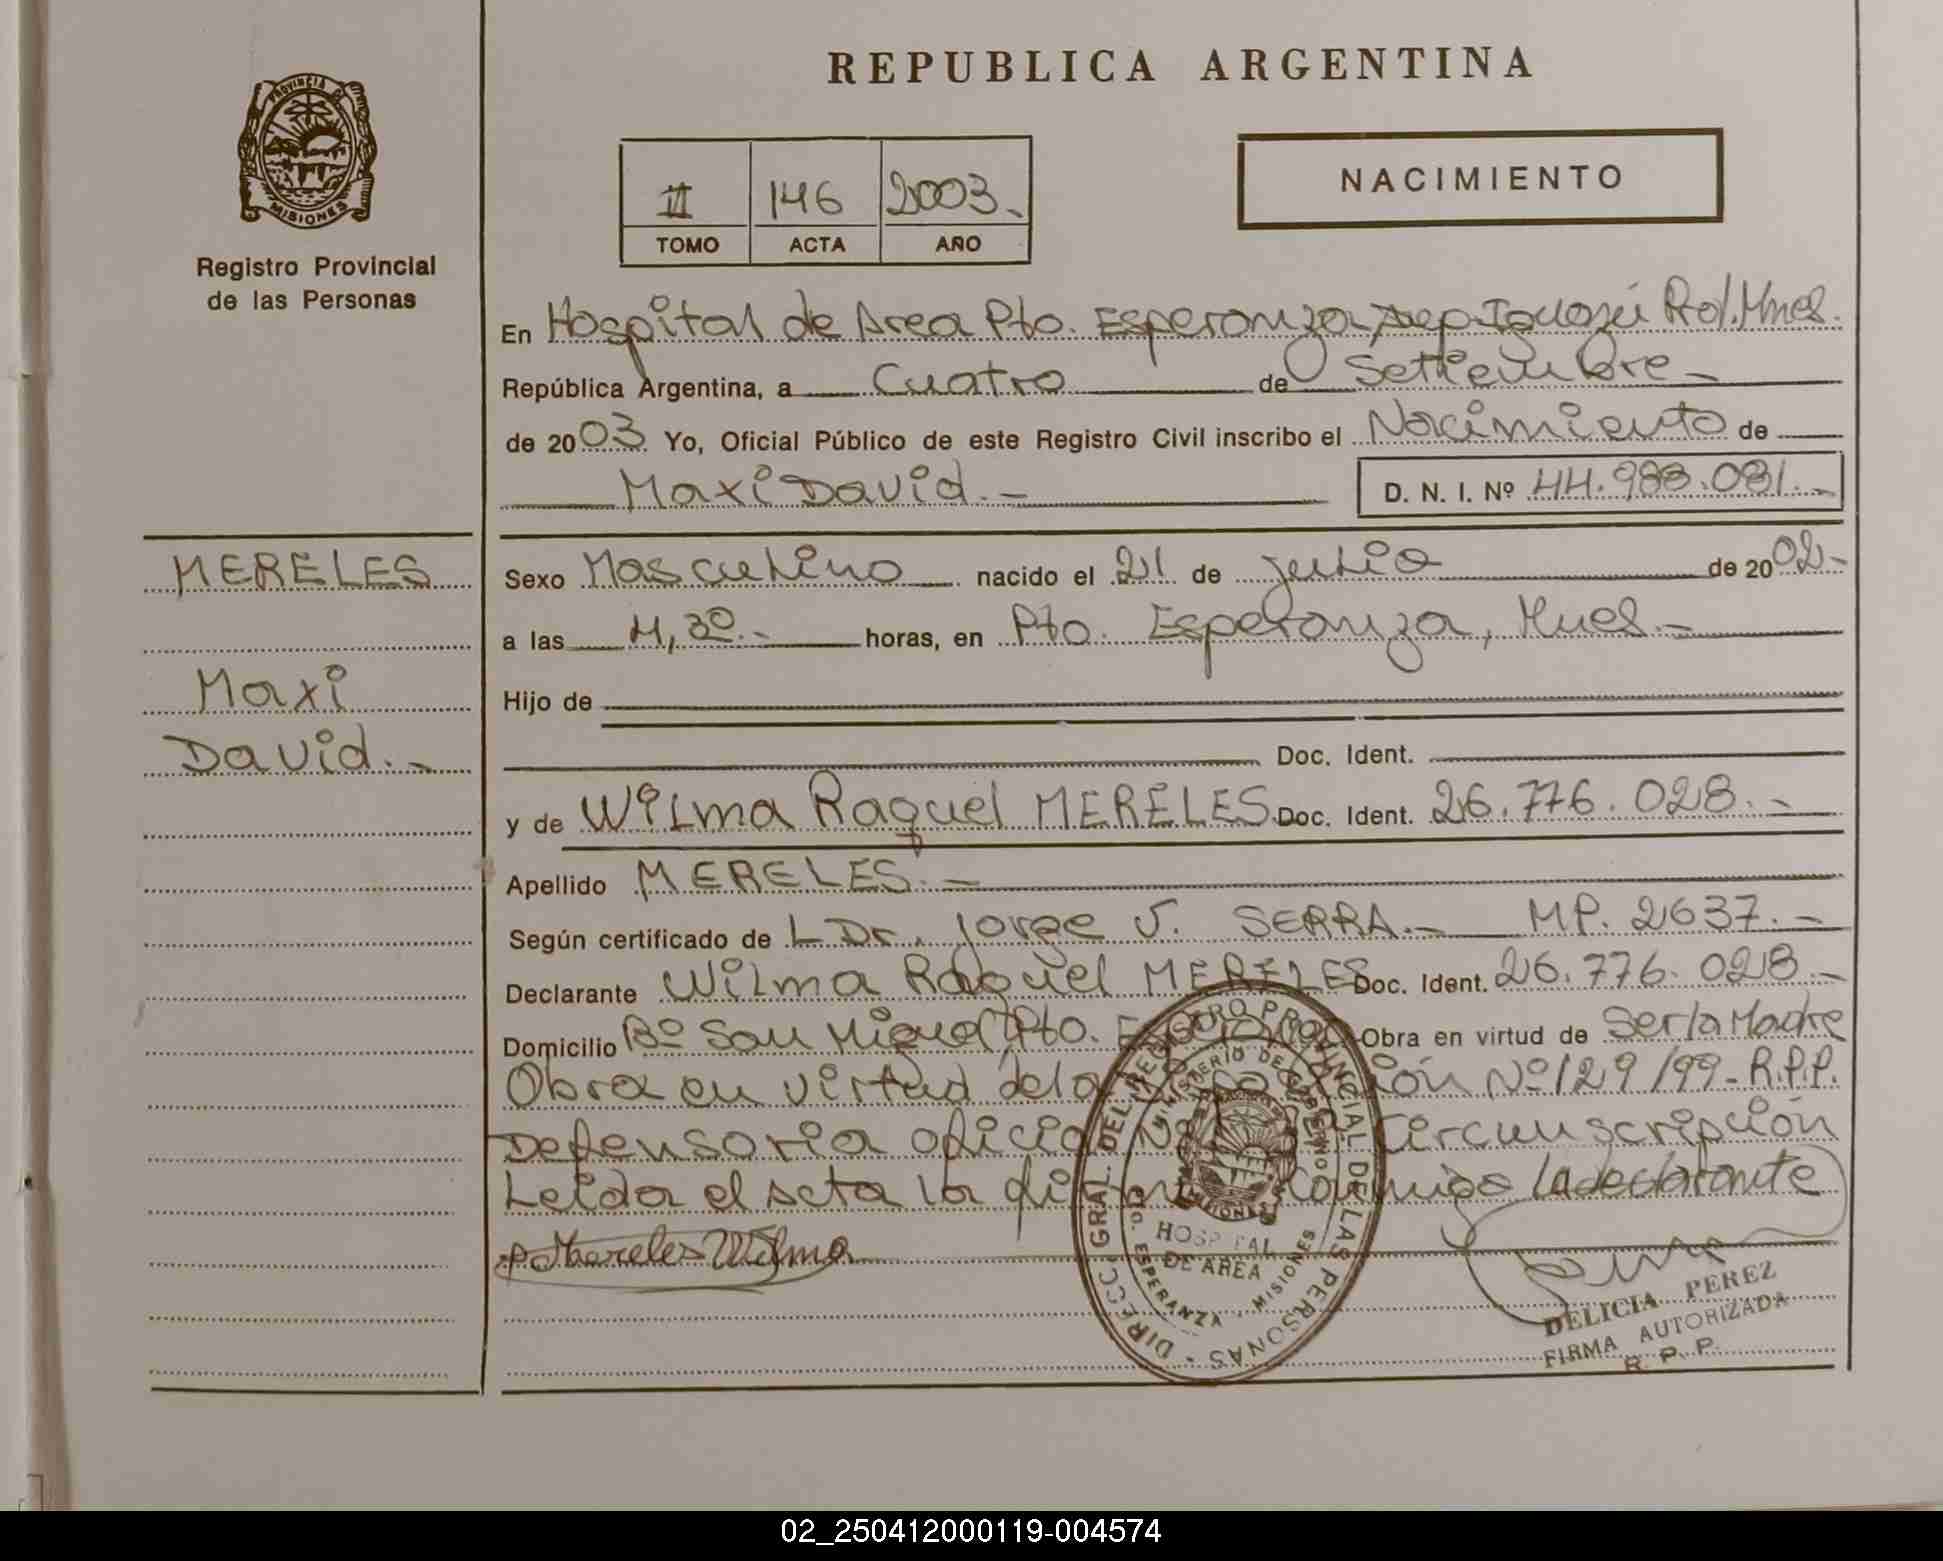 REPUBLICA ARGENTINA
PROVINCIA DE
MISIONES
Registro Provincial
de las Personas
II 146 2003.
TOMO ACTA AÑO
NACIMIENTO
En Hospital de Area Pto. Esperanza, Dep. Iguazú Prov. Mnes.
República Argentina, a Cuatro de Setiembre -
de 2003 Yo, Oficial Público de este Registro Civil inscribo el Nacimiento de
Maxi David. -
D. N. I. Nº 44.988.081. -
MERELES
Maxi
David. -
Sexo Masculino nacido el 21 de julio de 2002 -
a las 4,30. - horas, en Pto. Esperanza, Mnes. -
Hijo de
Doc. Ident.
y de Wilma Raquel MERELES Doc. Ident. 26.776.028. -
Apellido MERELES. -
Según certificado de L Dr. Jorge J. SERRA. - MP. 2637. -
Declarante Wilma Raquel MERELES Doc. Ident. 26.776.028. -
Domicilio Bº San Miguel Pto. Obra en virtud de Ser la Madre
Obra en virtud de la Nº 129/99 - R.P.P.
Defensoria oficial Circunscripción
Leida el acta la conmigo la declarante
Mereles Wilma
DIRECC. GRAL. DEL REGISTRO PROVINCIAL DE LAS PERSONAS
MINISTERIO DE GOBIERNO
MISIONES
HOSPITAL
DE AREA
PTO. ESPERANZA, MISIONES
DELICIA PEREZ
FIRMA AUTORIZADA
R. P. P.
02_250412000119-004574